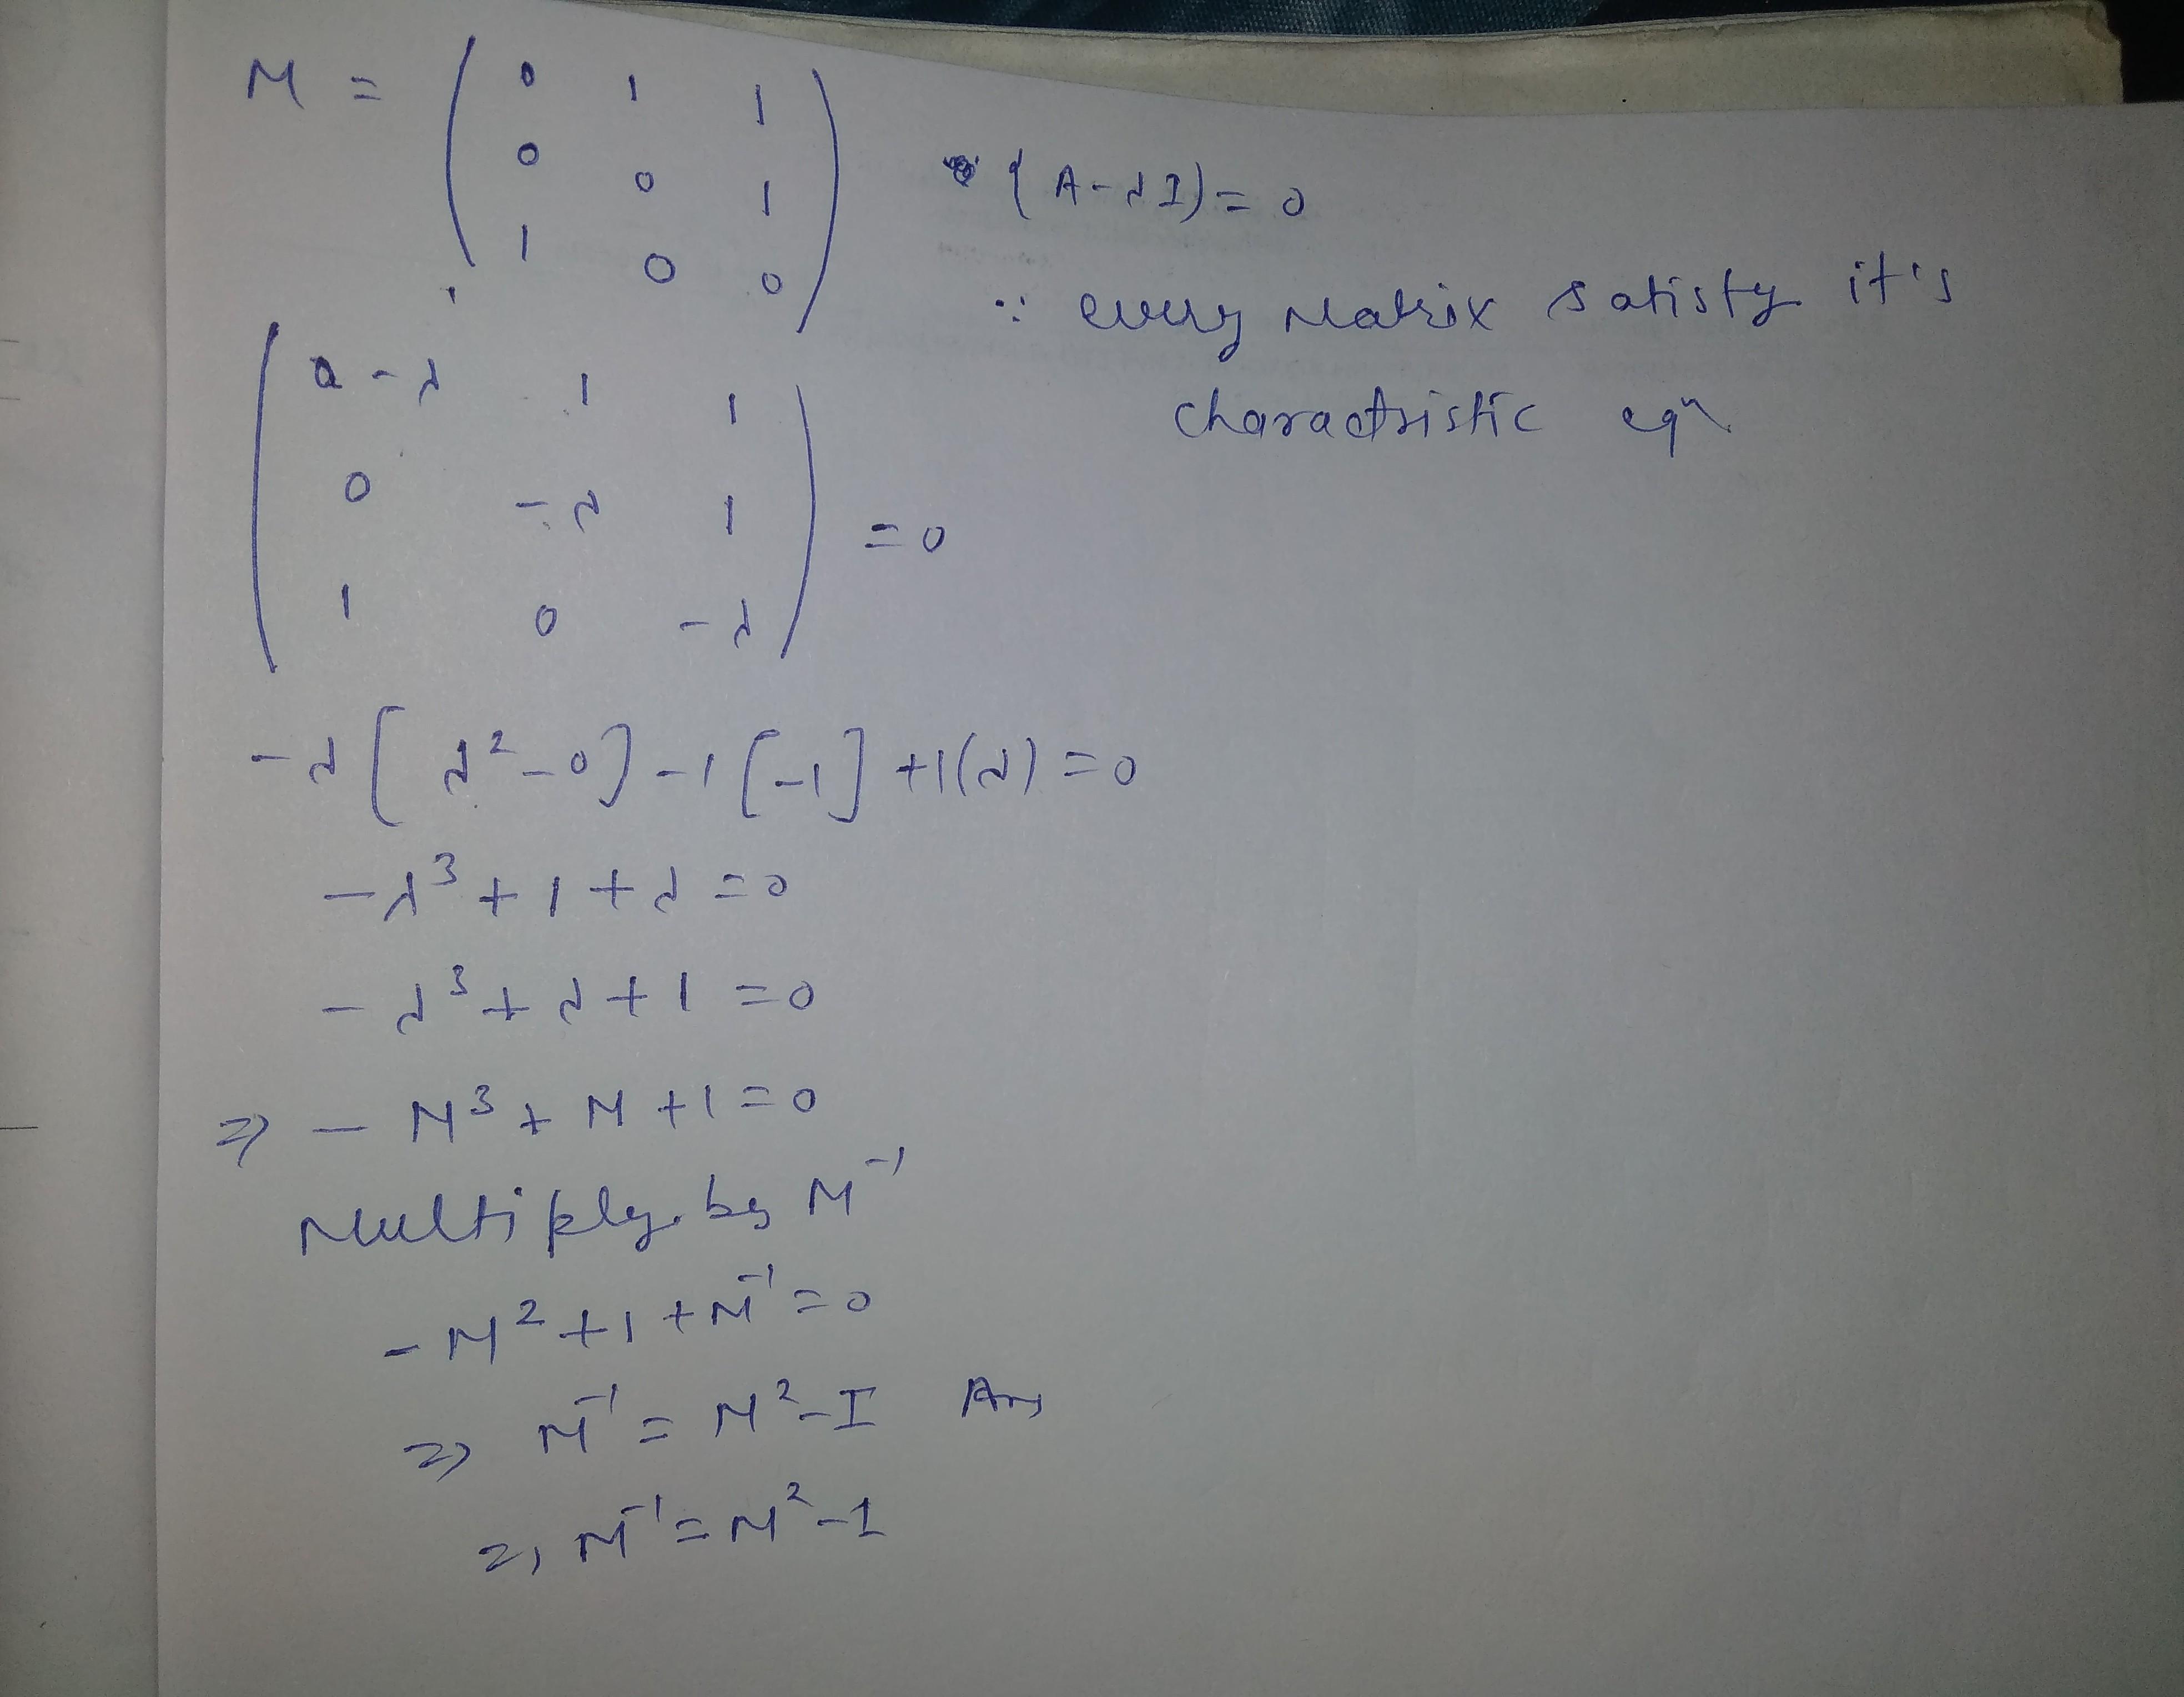 M = ( 0 1 1
0 0 1
1 0 0 )
(A-λI) = 0
∵ every Matrix satisfy it's
charactristic eqn
( 0-λ 1 1
0 -λ 1
1 0 -λ ) = 0
-λ[λ²-0] -1[-1] +1(λ) = 0
-λ³ + 1 + λ = 0
-λ³ + λ + 1 = 0
⇒ - M³ + M + 1 = 0
Multiply by M⁻¹
- M² + 1 + M⁻¹ = 0
⇒ M⁻¹ = M² - I Ans
⇒ M⁻¹ = M² - 1